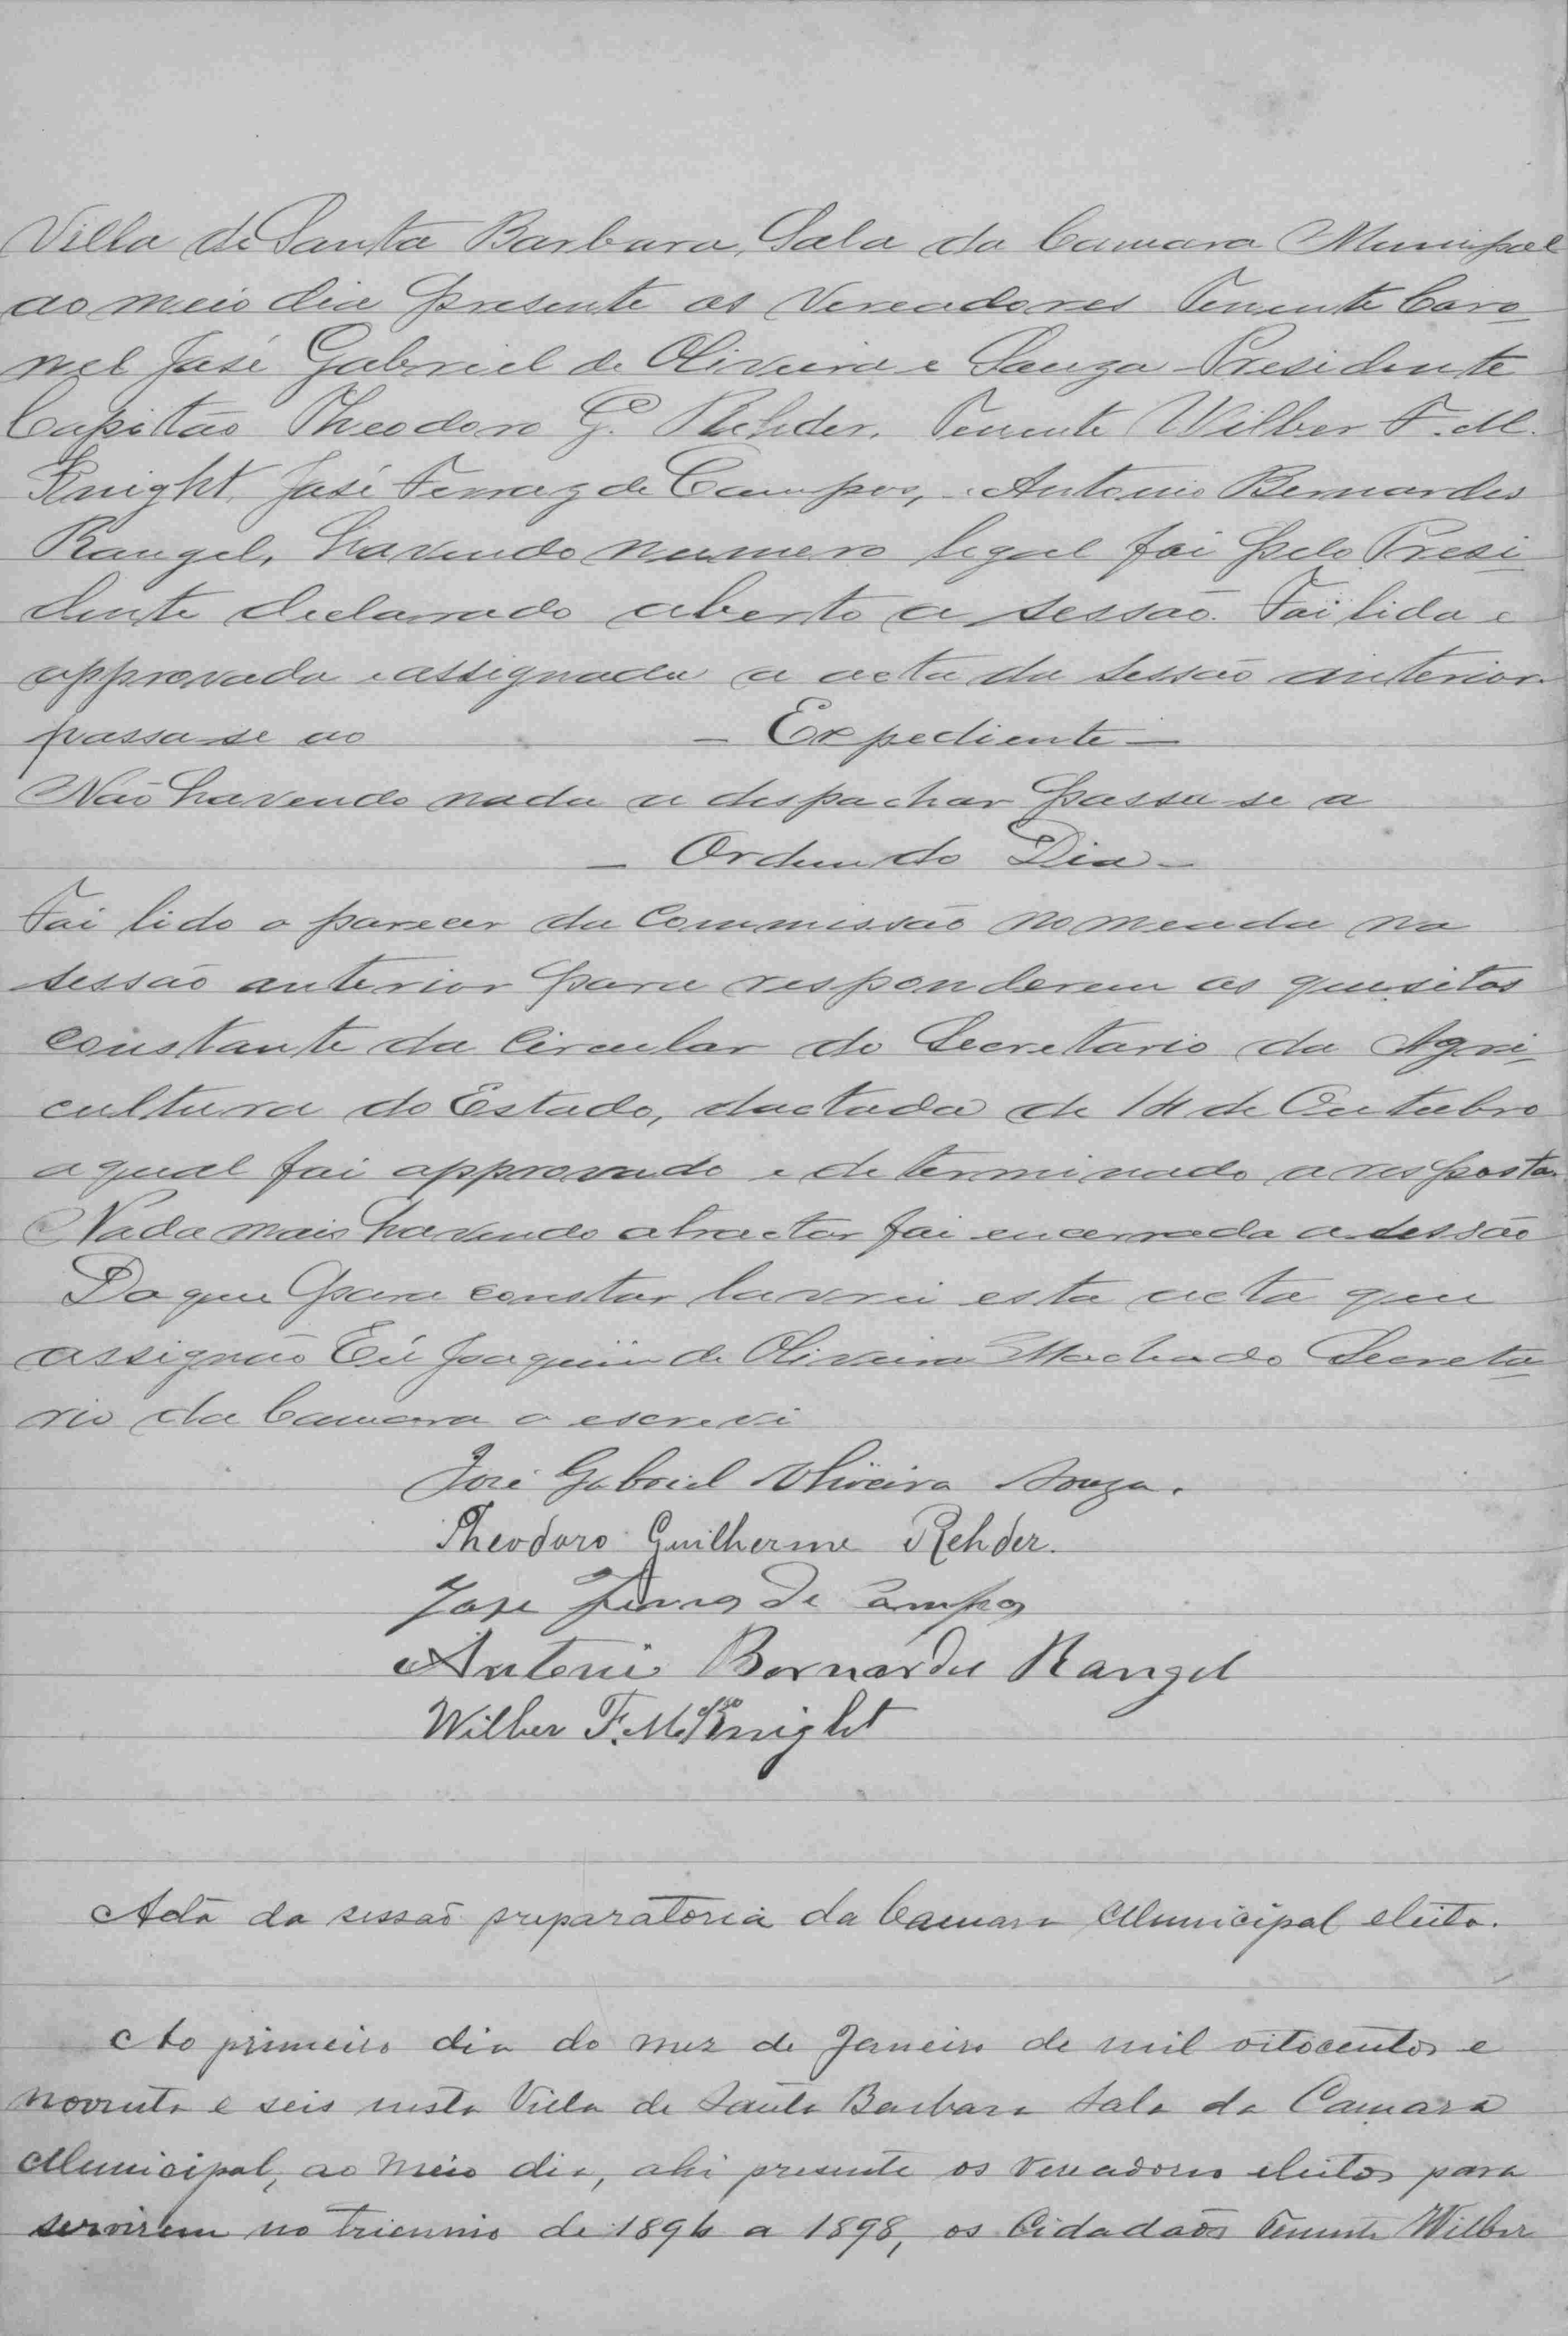 Villa de Santa Barbara, Sala da Camara Municipal
ao meio dia presente os Vereadores Tenente Coro
nel José Gabriel de Oliveira e Souza Presidente
Capitão Theodoro G. Rehder, Tenente Wilber F. M.
Knight, José Ferraz de Campos, Antonio Bernardes
Rangel, havendo numero legal foi pelo Presi
dente declarado aberto a sessão. Foi lida e
approvada e assignada a acta da sessão anterior.
passa-se ao — Expediente —
Não havendo nada a despachar passa-se a
— Ordem do Dia —
Foi lido o parecer da Commissão nomeada na
sessão anterior para responderem os quesitos
constante da Circular do Secretario da Agri
cultura do Estado, dactada de 14 de Outubro
a qual foi approvado e determinado a resposta.
Nada mais havendo a tractar foi encerrada a sessão
Do que para constar lavrei esta acta que
assignão Eú Joaquim de Oliveira Machado Secreta
rio da Camara o escrevi
José Gabriel Oliveira Souza.
Theodoro Guilherme Rehder.
Jose Ferraz De Campos
Antonio Bernardes Rangel
Wilber F. McKnight
Acta da sessão preparatoria da Camara Municipal eleita.
Ao primeiro dia do mez de Janeiro de mil oitocentos e
noventa e seis nesta Villa de Santa Barbara Sala da Camara
Municipal, ao meio dia, ahi presente os Vereadores eleitos para
servirem no triennio de 1896 a 1898, os Cidadãos Tenente Wilber